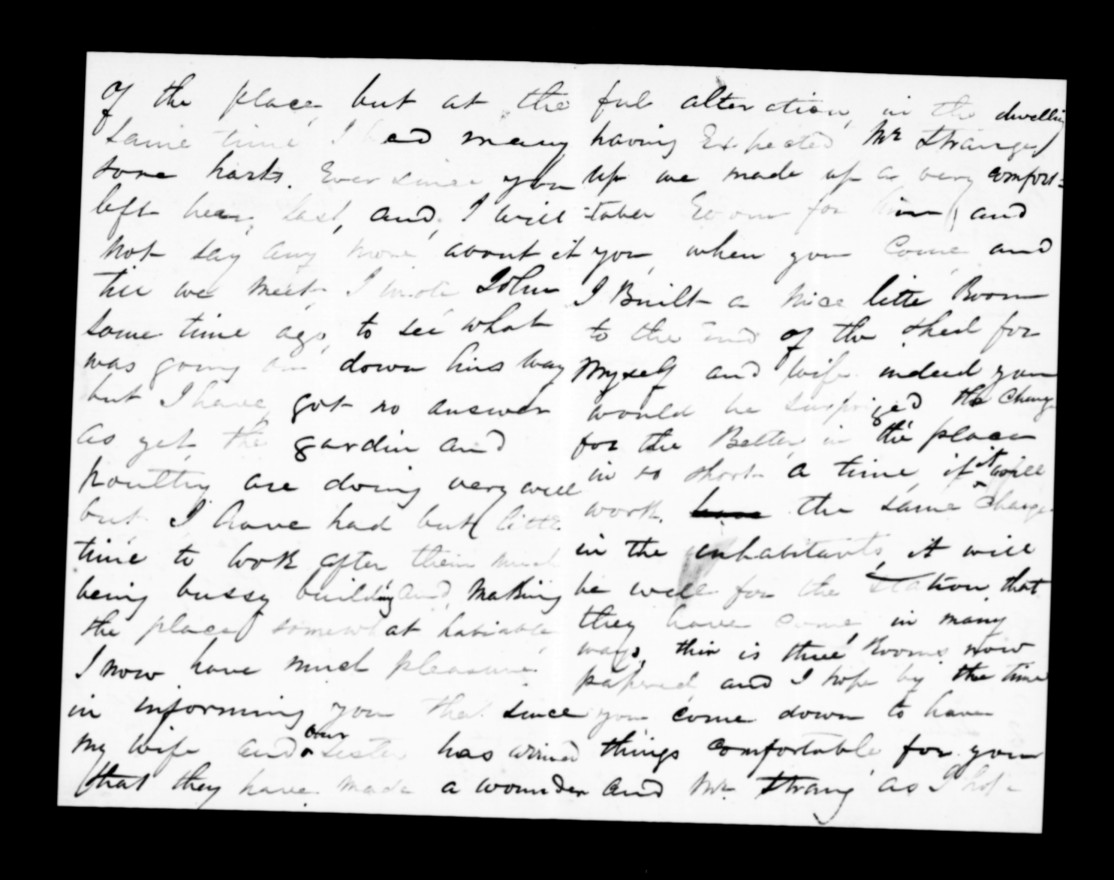 of the place, but at the
same time I had many
sore harts. Ever since you
left hear last, and, I will
not say any more about it
till we meet, I wrote John
some time ago, to see what
was going on down hiss way
but I have, got no answer
as yet, the gardin and
poultry are doing very well
but I have had but little
time to look after them much
being bussy building and making
the place somewhat habiable
I now have much pleasure
in informing you that since
my wife and our sister has arived
that they have made a wounder
ful alteration, in the dwelling
having Expected Mr Strange
up we made up a very comfort=
=table Room for him, and
you, when you come, and
I Built a nice litte Room
to the End of the shed for
myself and wife indeed you
would be surprized the change
for the Better, in the place
in so short a time, if it will
work the same change
in the inhabitants, it will
be well for the station, that
they have come, in many
ways, thir is three Rooms now
papered and I hope by the time
you come down to have
things comfortable for you
and Mr Strang as I